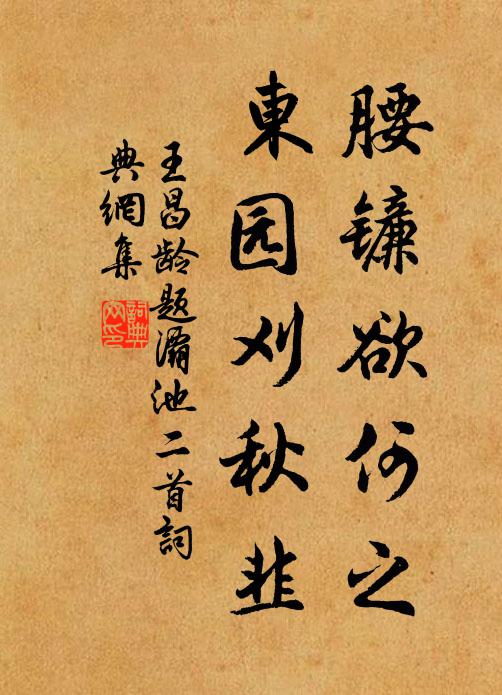 腰镰欲何之
東园刈秋韭
王昌龄题灞池二首詞
典網集
詞典網印